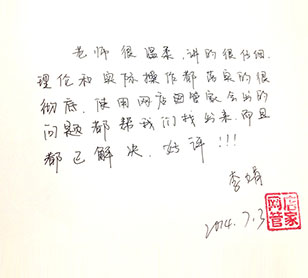 老师很温柔,讲的很仔细.
理伦和实际操作都落实的很
彻底,使用网店管家会出的
问题都帮我们找出来,而且
都已解决,好评!!!
李婧
2014.7.3
网店
管家